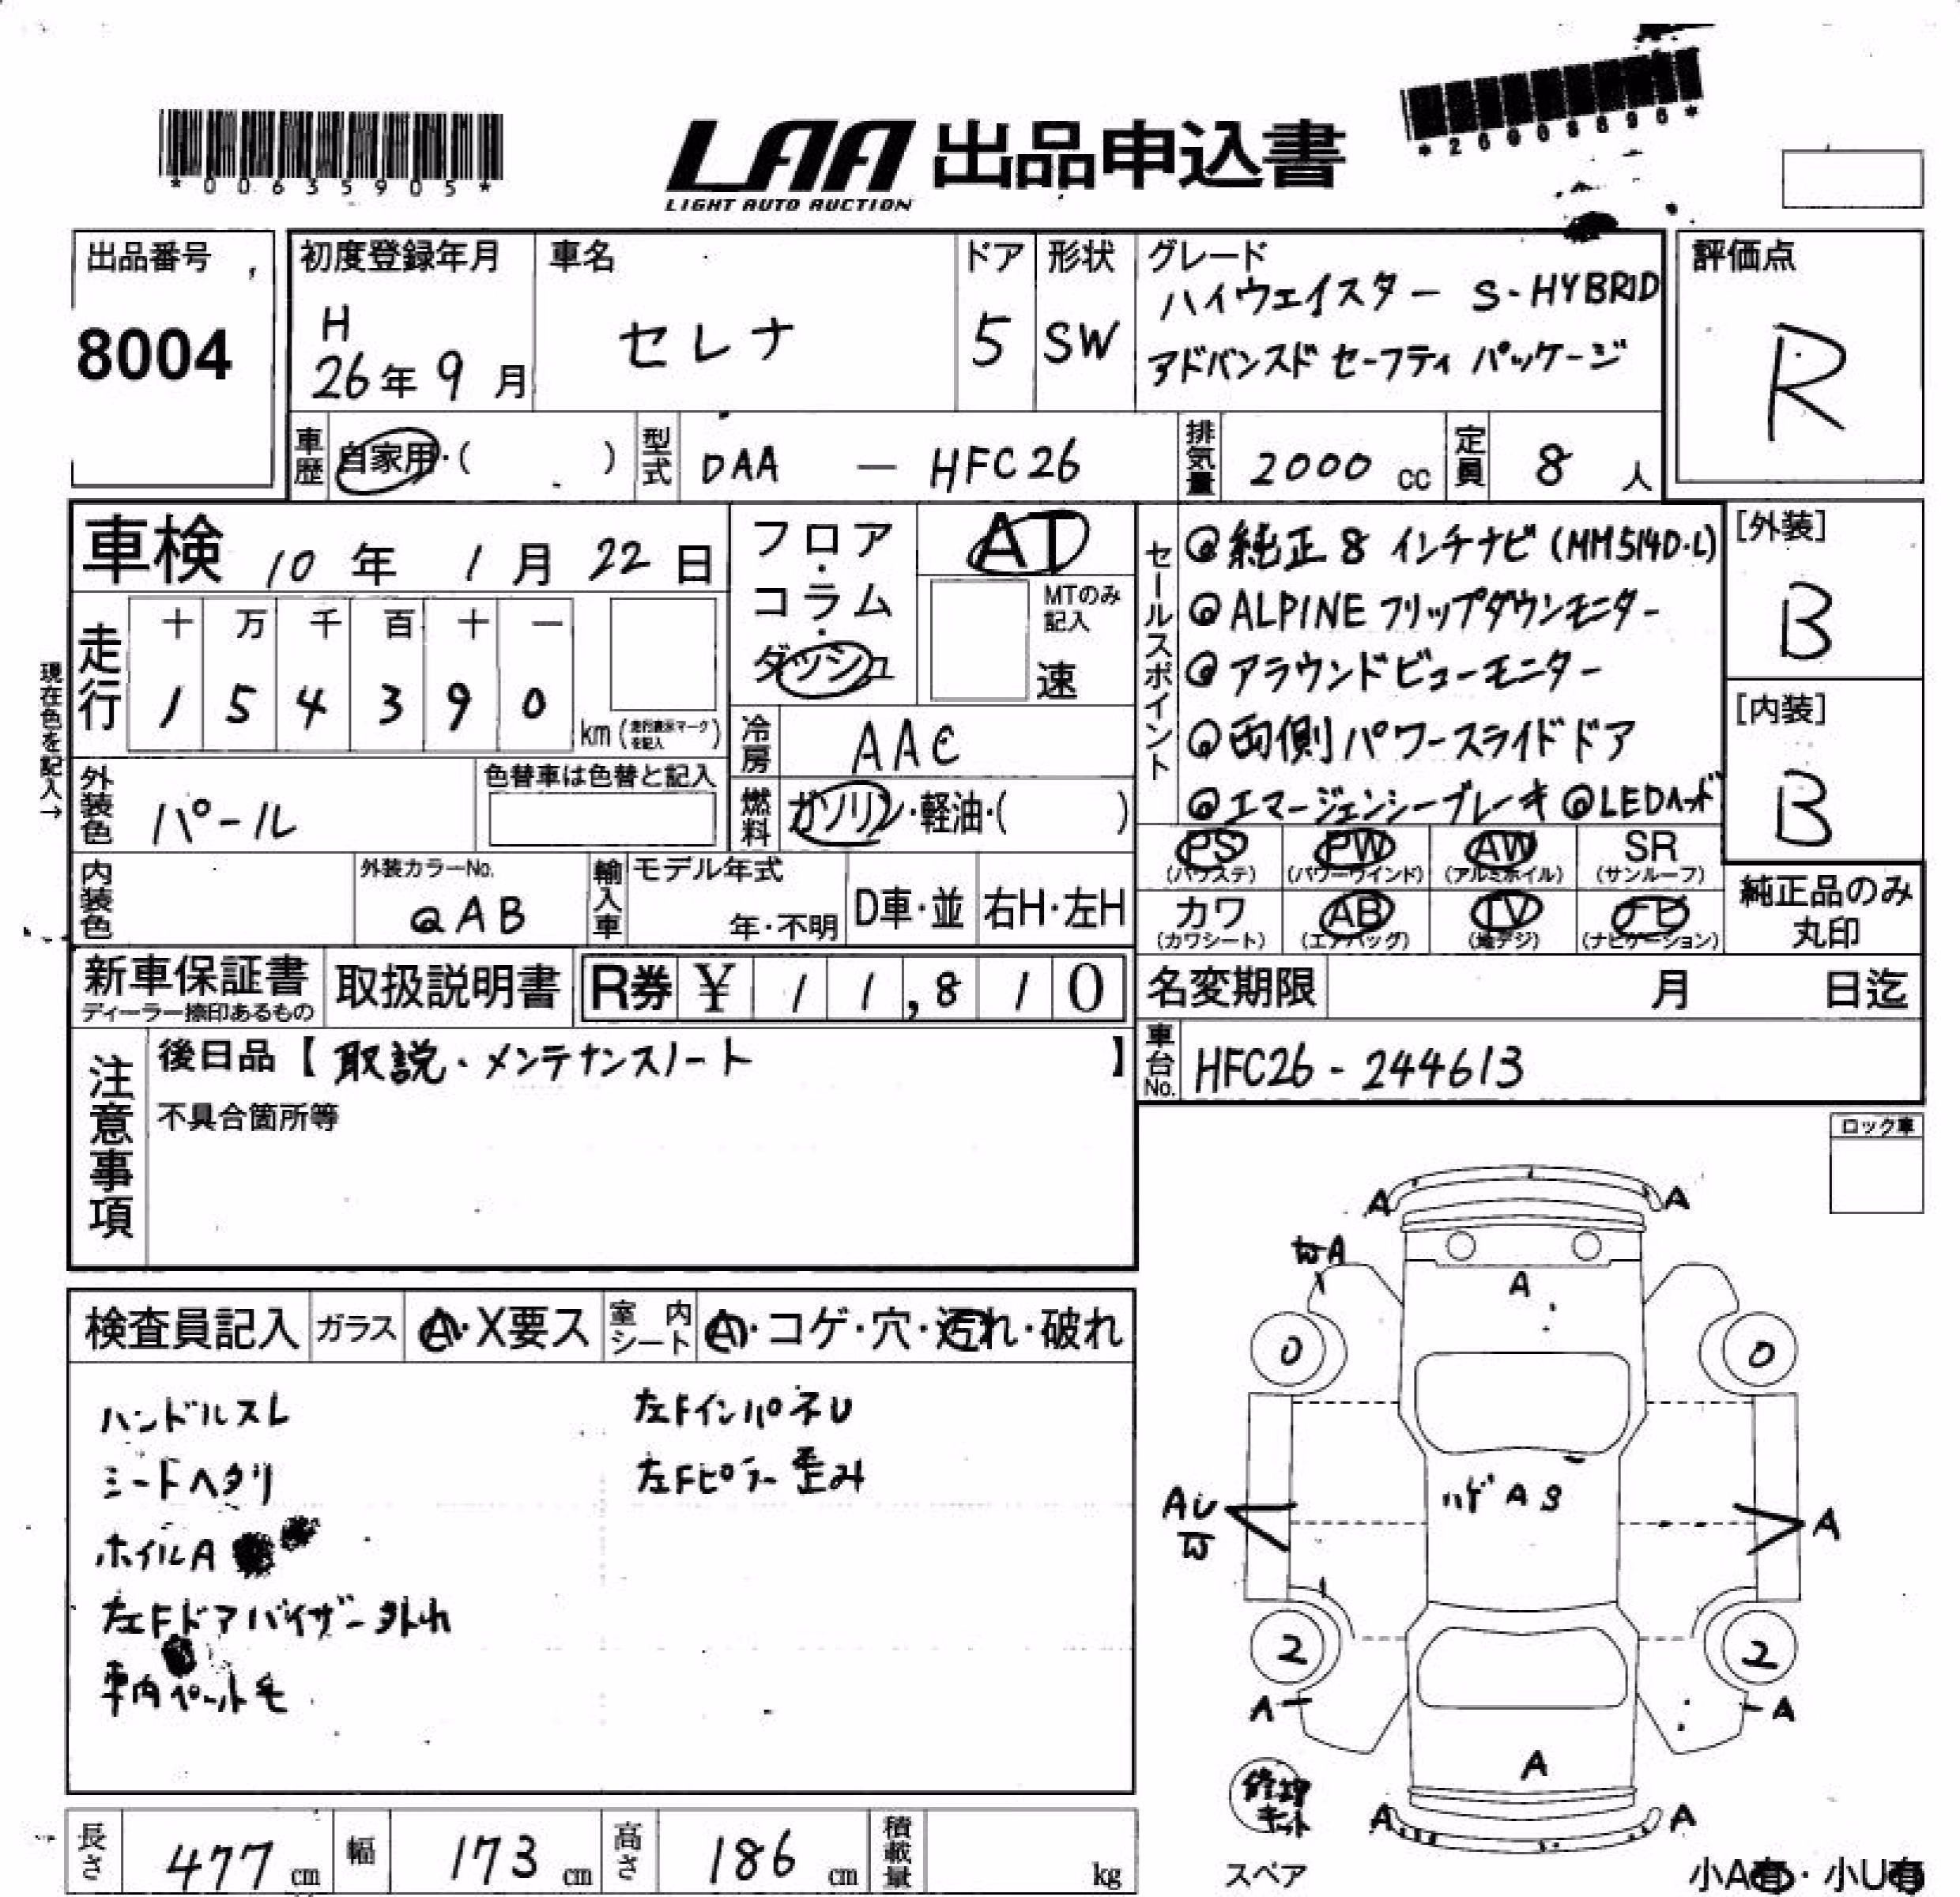 *00635905*
LAA 出品申込書
LIGHT AUTO AUCTION
出品番号
8004
初度登録年月
H
26年 9月
車名
セレナ
ドア
5
形状
SW
グレード
ハイウェイスター S-HYBRID
アドバンスド セーフティ パッケージ
評価点
R
車歴
自家用・( )
型式
DAA — HFC26
排気量
2000 cc
定員
8 人
車検 10年 1月 22日
フロア・コラム・ダッシュ
AT
MTのみ記入
速
走行
十 万 千 百 十 一
1 5 4 3 9 0
km (走行表示マークを記入)
現在色を記入→
冷房
AAC
外装色
パール
色替車は色替と記入
燃料
ガソリン・軽油・( )
内装色
外装カラーNo.
QAB
輸入車
モデル年式
年・不明
D車・並
右H・左H
セールスポイント
◎純正8インチナビ(MM514D-L)
◎ALPINE フリップダウンモニター
◎アラウンドビューモニター
◎両側パワースライドドア
◎エマージェンシーブレーキ ◎LEDヘッド
[外装]
B
[内装]
B
PS PW AW SR
(パワステ) (パワーウインド) (アルミホイル) (サンルーフ)
カワ AB TV ナビ
(カワシート) (エアバッグ) (地デジ) (ナビゲーション)
純正品のみ
丸印
新車保証書
ディーラー捺印あるもの
取扱説明書
R券 ¥ 11,810
名変期限 月 日迄
車台No.
HFC26-244613
注意事項
後日品【取説・メンテナンスノート】
不具合箇所等
ロック車
検査員記入
ガラス
A・X要ス
室内シート
A・コゲ・穴・汚れ・破れ
ハンドルスレ
シートヘタリ
ホイルA
左Fドアバイザー外れ
車内ペット毛
左FインパネU
左Fピラー歪み
A A
A
A
0 0
AU
A
2 2
A A
A
A A
修理キット
スペア
小A有・小U有
長さ
477 cm
幅
173 cm
高さ
186 cm
積載量
kg